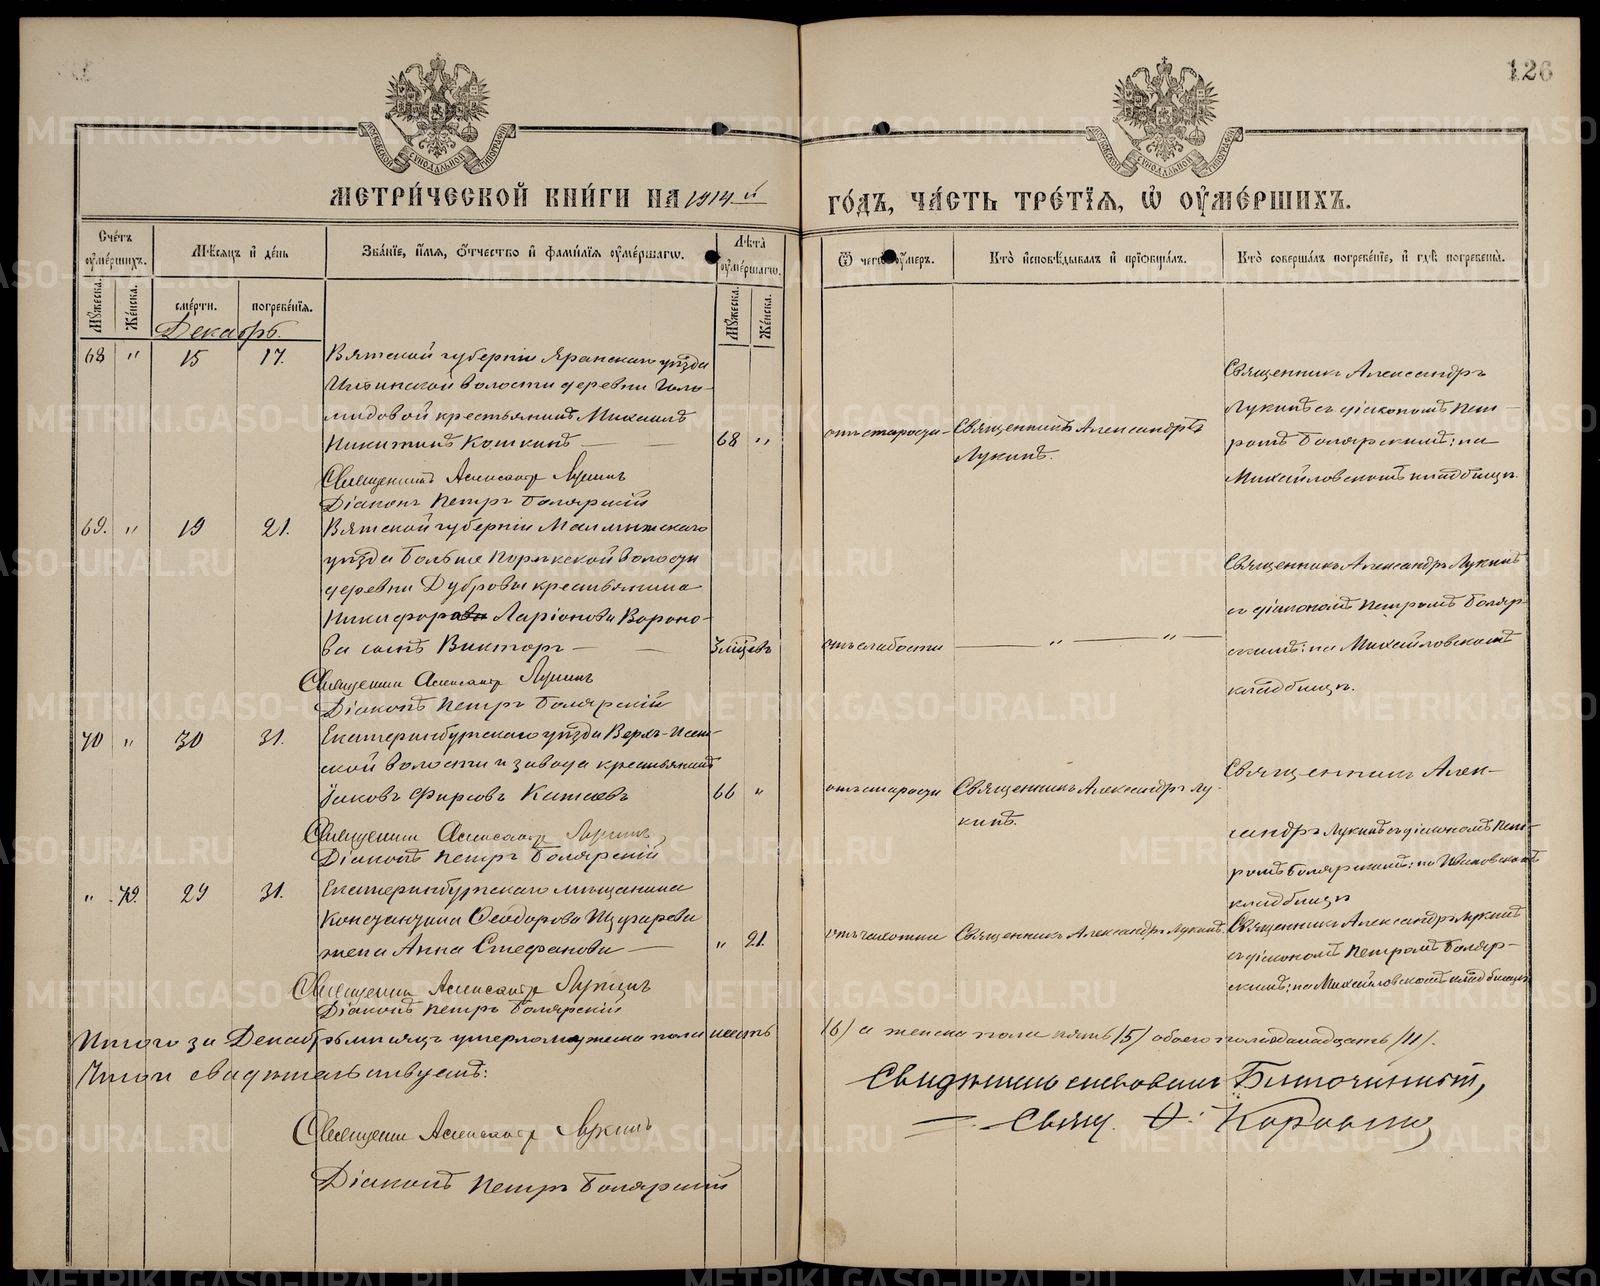 126
МОСКОВСКОЙ СѴНОДАЛЬНОЙ ТИПОГРАФІИ
МОСКОВСКОЙ СѴНОДАЛЬНОЙ ТИПОГРАФІИ
МЕТРИ́ЧЕСКОЙ КНИ́ГИ НА 1914 й
ГО́ДЪ, ЧА́СТЬ ТРЕ́ТЇѦ, Ѽ ОУ҆МЕ́РШИХЪ.
Сче́тъ оу҆ме́ршихъ.
Мѣ́сяцъ и҆ де́нь
Зва́нїе, и҆́мѧ, ѻ҆́тчество и҆ фами́лїѧ оу҆ме́ршагѡ.
Лѣта̀ оу҆ме́ршагѡ.
Ѿ чегѡ̀ оу҆́меръ.
Кто̀ и҆сповѣ́дывалъ и҆ прїѡбща́лъ.
Кто̀ соверша́лъ погребе́нїе, и҆ гдѣ̀ погребены̀.
Мꙋ́жеска.
Же́нска.
сме́рти.
погребе́нїѧ.
Мꙋ́жеска.
Же́нска.
Декабрь
68 " 15 17. Вятской губерніи Яранскаго уѣзда
волости деревни
крестьянинъ Михаилъ
Никитинъ Кошкинъ — 68 "
отъ старости
Священникъ Александръ
Лукинъ.
Священникъ Александръ
Лукинъ съ діакономъ Пет-
ромъ Болярскимъ; на
Михайловскомъ кладбищѣ.
Священникъ Александр Лукинъ
Діаконъ Петръ Болярскій
69. " 19 21. Вятской губерніи Малмыжскаго
уѣзда Больше Порекской волости
деревни Дубровы крестьянина
Никифора Ларіонова Вороно-
ва сынъ Викторъ — 3 мѣсцевъ
отъ слабости — " — " —
Священникъ Александръ Лукинъ
съ діакономъ Петромъ Боляр-
скимъ; на Михайловскомъ
кладбищѣ.
Священник Александр Лукинъ
Діаконъ Петръ Болярскій
70 " 30 31. Екатеринбургскаго уѣзда Верх-Исет-
ской волости и завода крестьянинъ
Іаковъ Фирсовъ Китаевъ 66 "
отъ старости
Священникъ Александръ Лу-
кинъ.
Священникъ Алек-
сандръ Лукинъ съ діакономъ Пет-
ромъ Болярскимъ; на Ивановскомъ
кладбищѣ
Священник Александр Лукинъ
Діаконъ Петръ Болярскій
" 72. 29 31. Екатеринбургскаго мѣщанина
Константина Ѳеодорова
жена Анна Стефанова — " 21.
отъ чахотки
Священникъ Александръ Лукинъ.
Священникъ Александръ Лукинъ
съ діакономъ Петромъ Боляр-
скимъ; на Михайловскомъ кладбищѣ
Священник Александр Лукинъ
Діаконъ Петръ Болярскій
Итого за Декабрь мѣсяцъ умерло мужеска пола шесть
/6/ а женска пола пять /5/ обоего пола одинадцать /11/.
свидѣтельствуемъ:
Священник Александр Лукинъ
Діаконъ Петръ Болярскій
Свидѣтельствовалъ Благочинный,
Свящ.
METRIKI.GASO-URAL.RU